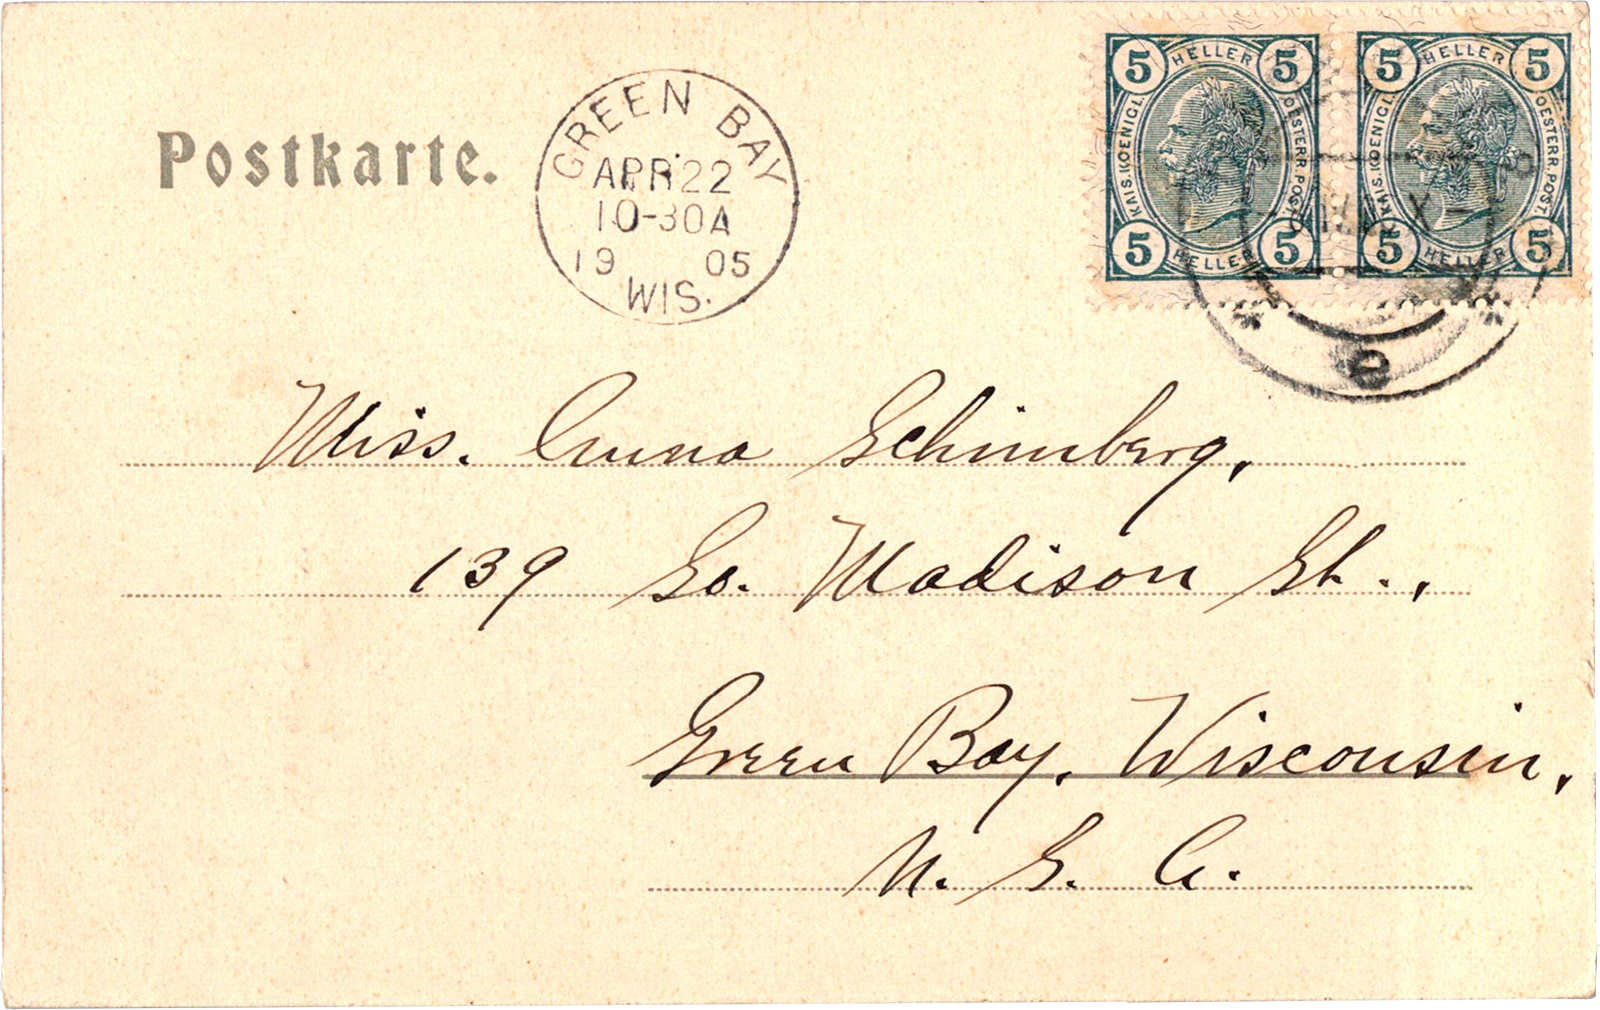 Postkarte.
GREEN BAY
APR 22
10-30A
19 05
WIS.
5 HELLER 5
KAIS. KOENIGL. OESTERR. POST.
5 HELLER 5
5 HELLER 5
KAIS. KOENIGL. OESTERR. POST.
5 HELLER 5
e
Miss. Anna Schimberg,
139 So. Madison St.,
Green Bay, Wisconsin,
U. S. A.